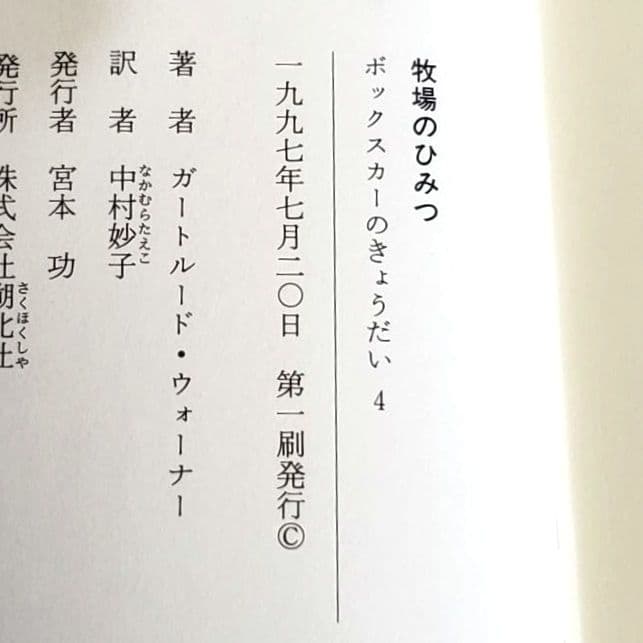 牧場のひみつ
ボックスカーのきょうだい 4
一九九七年七月二〇日 第一刷発行©
著者 ガートルード・ウォーナー
訳者 中村妙子
なかむらたえこ
発行者 宮本 功
発行所 株式会社朔北社
さくほくしゃ